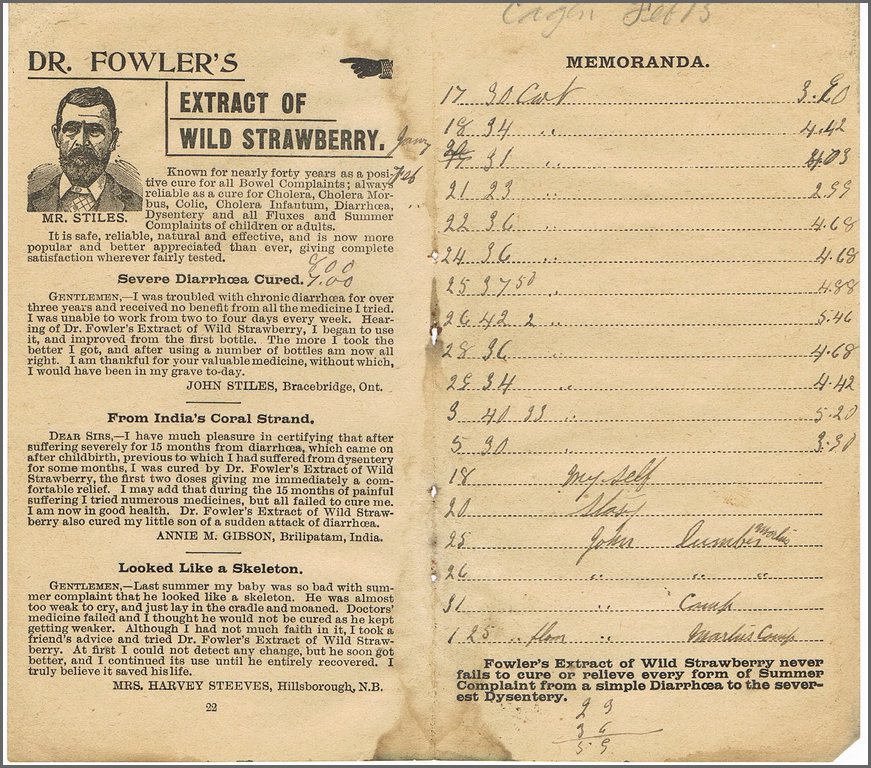 DR. FOWLER'S
EXTRACT OF
WILD STRAWBERRY.
MR. STILES.
Known for nearly forty years as a posi-
tive cure for all Bowel Complaints; always
reliable as a cure for Cholera, Cholera Mor-
bus, Colic, Cholera Infantum, Diarrhœa,
Dysentery and all Fluxes and Summer
Complaints of children or adults.
It is safe, reliable, natural and effective, and is now more
popular and better appreciated than ever, giving complete
satisfaction wherever fairly tested.
Severe Diarrhœa Cured.
7.00
GENTLEMEN,—I was troubled with chronic diarrhœa for over
three years and received no benefit from all the medicine I tried.
I was unable to work from two to four days every week. Hear-
ing of Dr. Fowler's Extract of Wild Strawberry, I began to use
it, and improved from the first bottle. The more I took the
better I got, and after using a number of bottles am now all
right. I am thankful for your valuable medicine, without which,
I would have been in my grave to-day.
JOHN STILES, Bracebridge, Ont.
From India's Coral Strand.
DEAR SIRS,—I have much pleasure in certifying that after
suffering severely for 15 months from diarrhœa, which came on
after childbirth, previous to which I had suffered from dysentery
for some months, I was cured by Dr. Fowler's Extract of Wild
Strawberry, the first two doses giving me immediately a com-
fortable relief. I may add that during the 15 months of painful
suffering I tried numerous medicines, but all failed to cure me.
I am now in good health. Dr. Fowler's Extract of Wild Straw-
berry also cured my little son of a sudden attack of diarrhœa.
ANNIE M. GIBSON, Brilipatam, India.
Looked Like a Skeleton.
GENTLEMEN,—Last summer my baby was so bad with sum-
mer complaint that he looked like a skeleton. He was almost
too weak to cry, and just lay in the cradle and moaned. Doctors'
medicine failed and I thought he would not be cured as he kept
getting weaker. Although I had not much faith in it, I took a
friend's advice and tried Dr. Fowler's Extract of Wild Straw-
berry. At first I could not detect any change, but he soon got
better, and I continued its use until he entirely recovered. I
truly believe it saved his life.
MRS. HARVEY STEEVES, Hillsborough, N.B.
22
Feb 13
MEMORANDA.
17 30 Cwt
18 34 " 4.42
31 " 4.03
21 23 " 2.99
22 36 " 4.68
24 36 4.68
25 37 50 " 4.88
26 42 2 " 5.46
28 36 " 4.68
29 34 " 4.42
3 40 33 " 5.20
5 30 " 3.90
18 my self
20
25 John lumber
26 " " "
31 " Camp
1 25 " " Camp
Fowler's Extract of Wild Strawberry never
fails to cure or relieve every form of Summer
Complaint from a simple Diarrhœa to the sever-
est Dysentery.
23
36
59